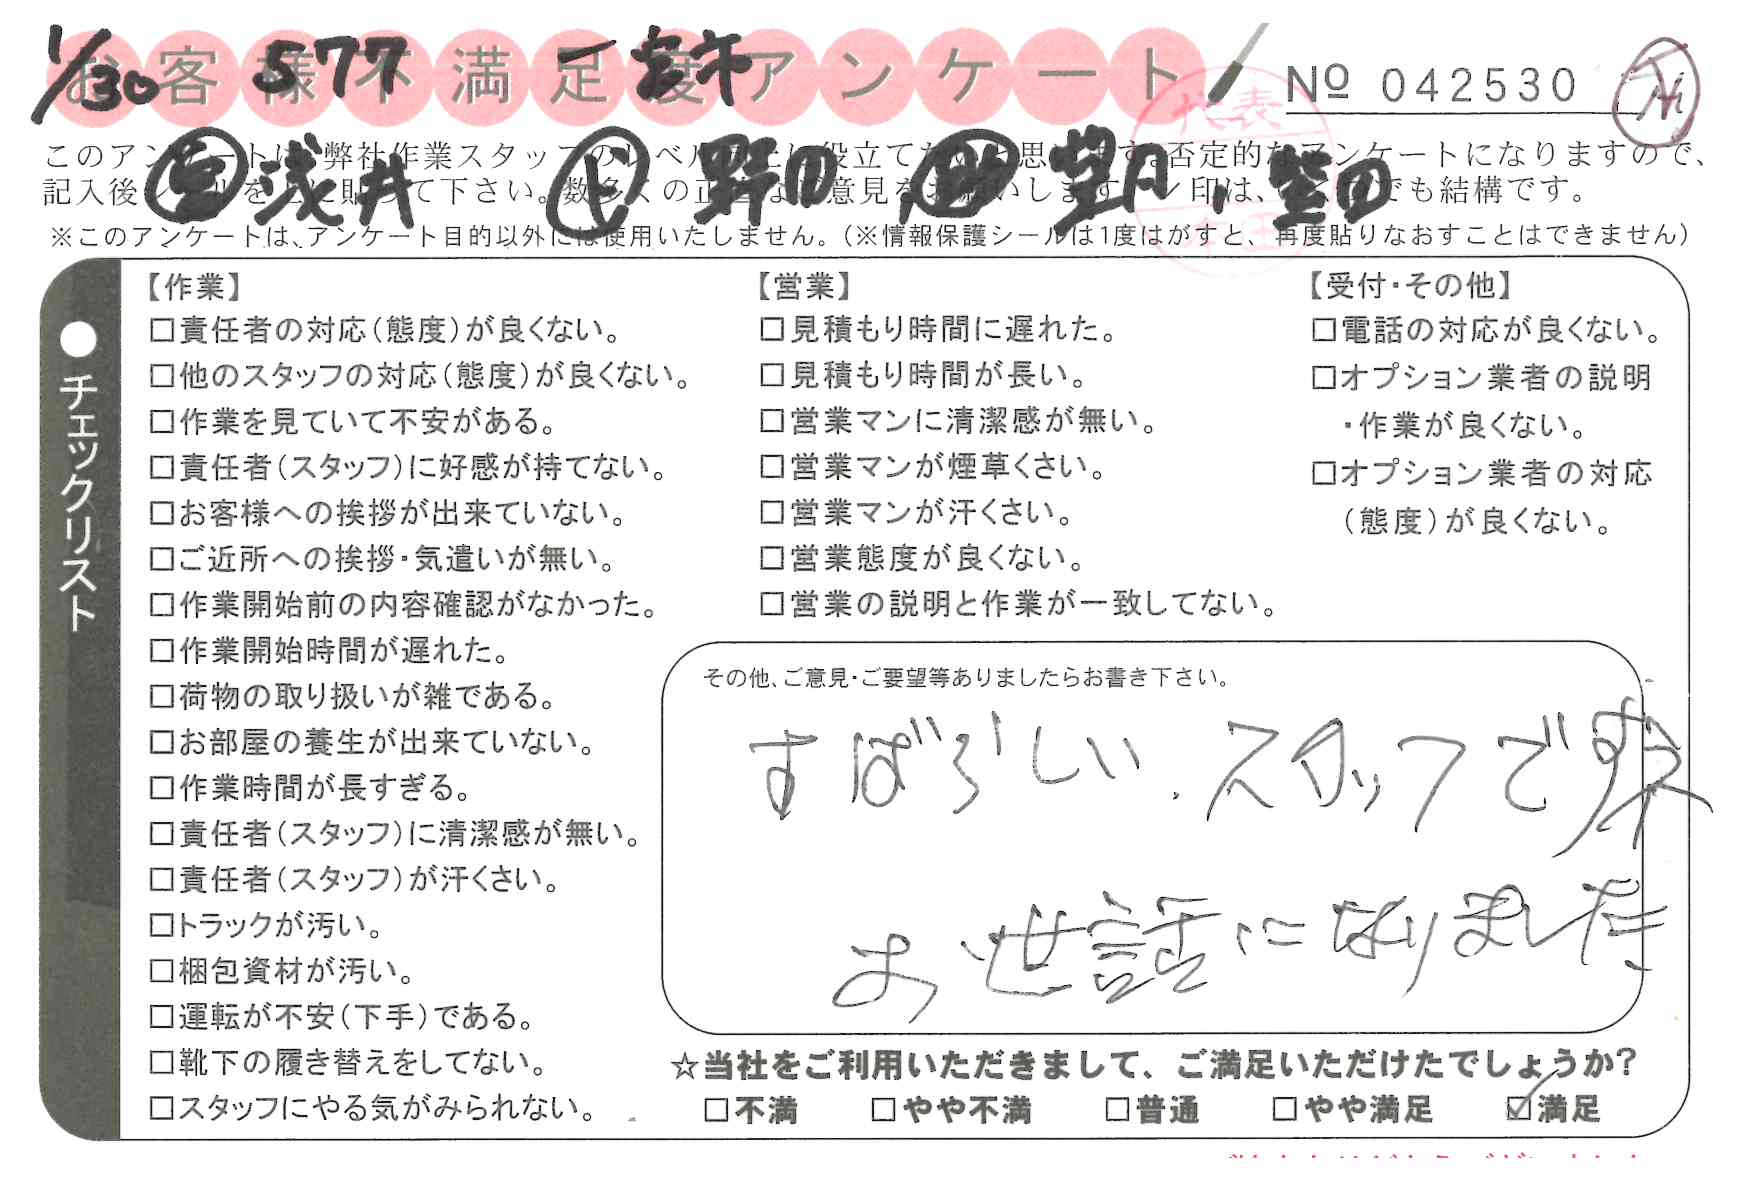 1/30 577
お客様不満足度アンケート
№ 042530
このアンケートは、弊社作業スタッフのレベル向上に役立てたいと思います。否定的なアンケートになりますので、
記入後シールを上に貼って下さい。数多くの正直なご意見をお願いします。サイン印は、でも結構です。
浅井 野田 望月
※このアンケートは、アンケート目的以外には使用いたしません。(※情報保護シールは1度はがすと、再度貼りなおすことはできません)
代表
●チェックリスト
【作業】
□責任者の対応(態度)が良くない。
□他のスタッフの対応(態度)が良くない。
□作業を見ていて不安がある。
□責任者(スタッフ)に好感が持てない。
□お客様への挨拶が出来ていない。
□ご近所への挨拶・気遣いが無い。
□作業開始前の内容確認がなかった。
□作業開始時間が遅れた。
□荷物の取り扱いが雑である。
□お部屋の養生が出来ていない。
□作業時間が長すぎる。
□責任者(スタッフ)に清潔感が無い。
□責任者(スタッフ)が汗くさい。
□トラックが汚い。
□梱包資材が汚い。
□運転が不安(下手)である。
□靴下の履き替えをしてない。
□スタッフにやる気がみられない。
【営業】
□見積もり時間に遅れた。
□見積もり時間が長い。
□営業マンに清潔感が無い。
□営業マンが煙草くさい。
□営業マンが汗くさい。
□営業態度が良くない。
□営業の説明と作業が一致してない。
【受付・その他】
□電話の対応が良くない。
□オプション業者の説明
・作業が良くない。
□オプション業者の対応
(態度)が良くない。
その他、ご意見・ご要望等ありましたらお書き下さい。
すばらしい スタッフで
お世話になりました
☆当社をご利用いただきまして、ご満足いただけたでしょうか?
□不満 □やや不満 □普通 □やや満足 ☑満足